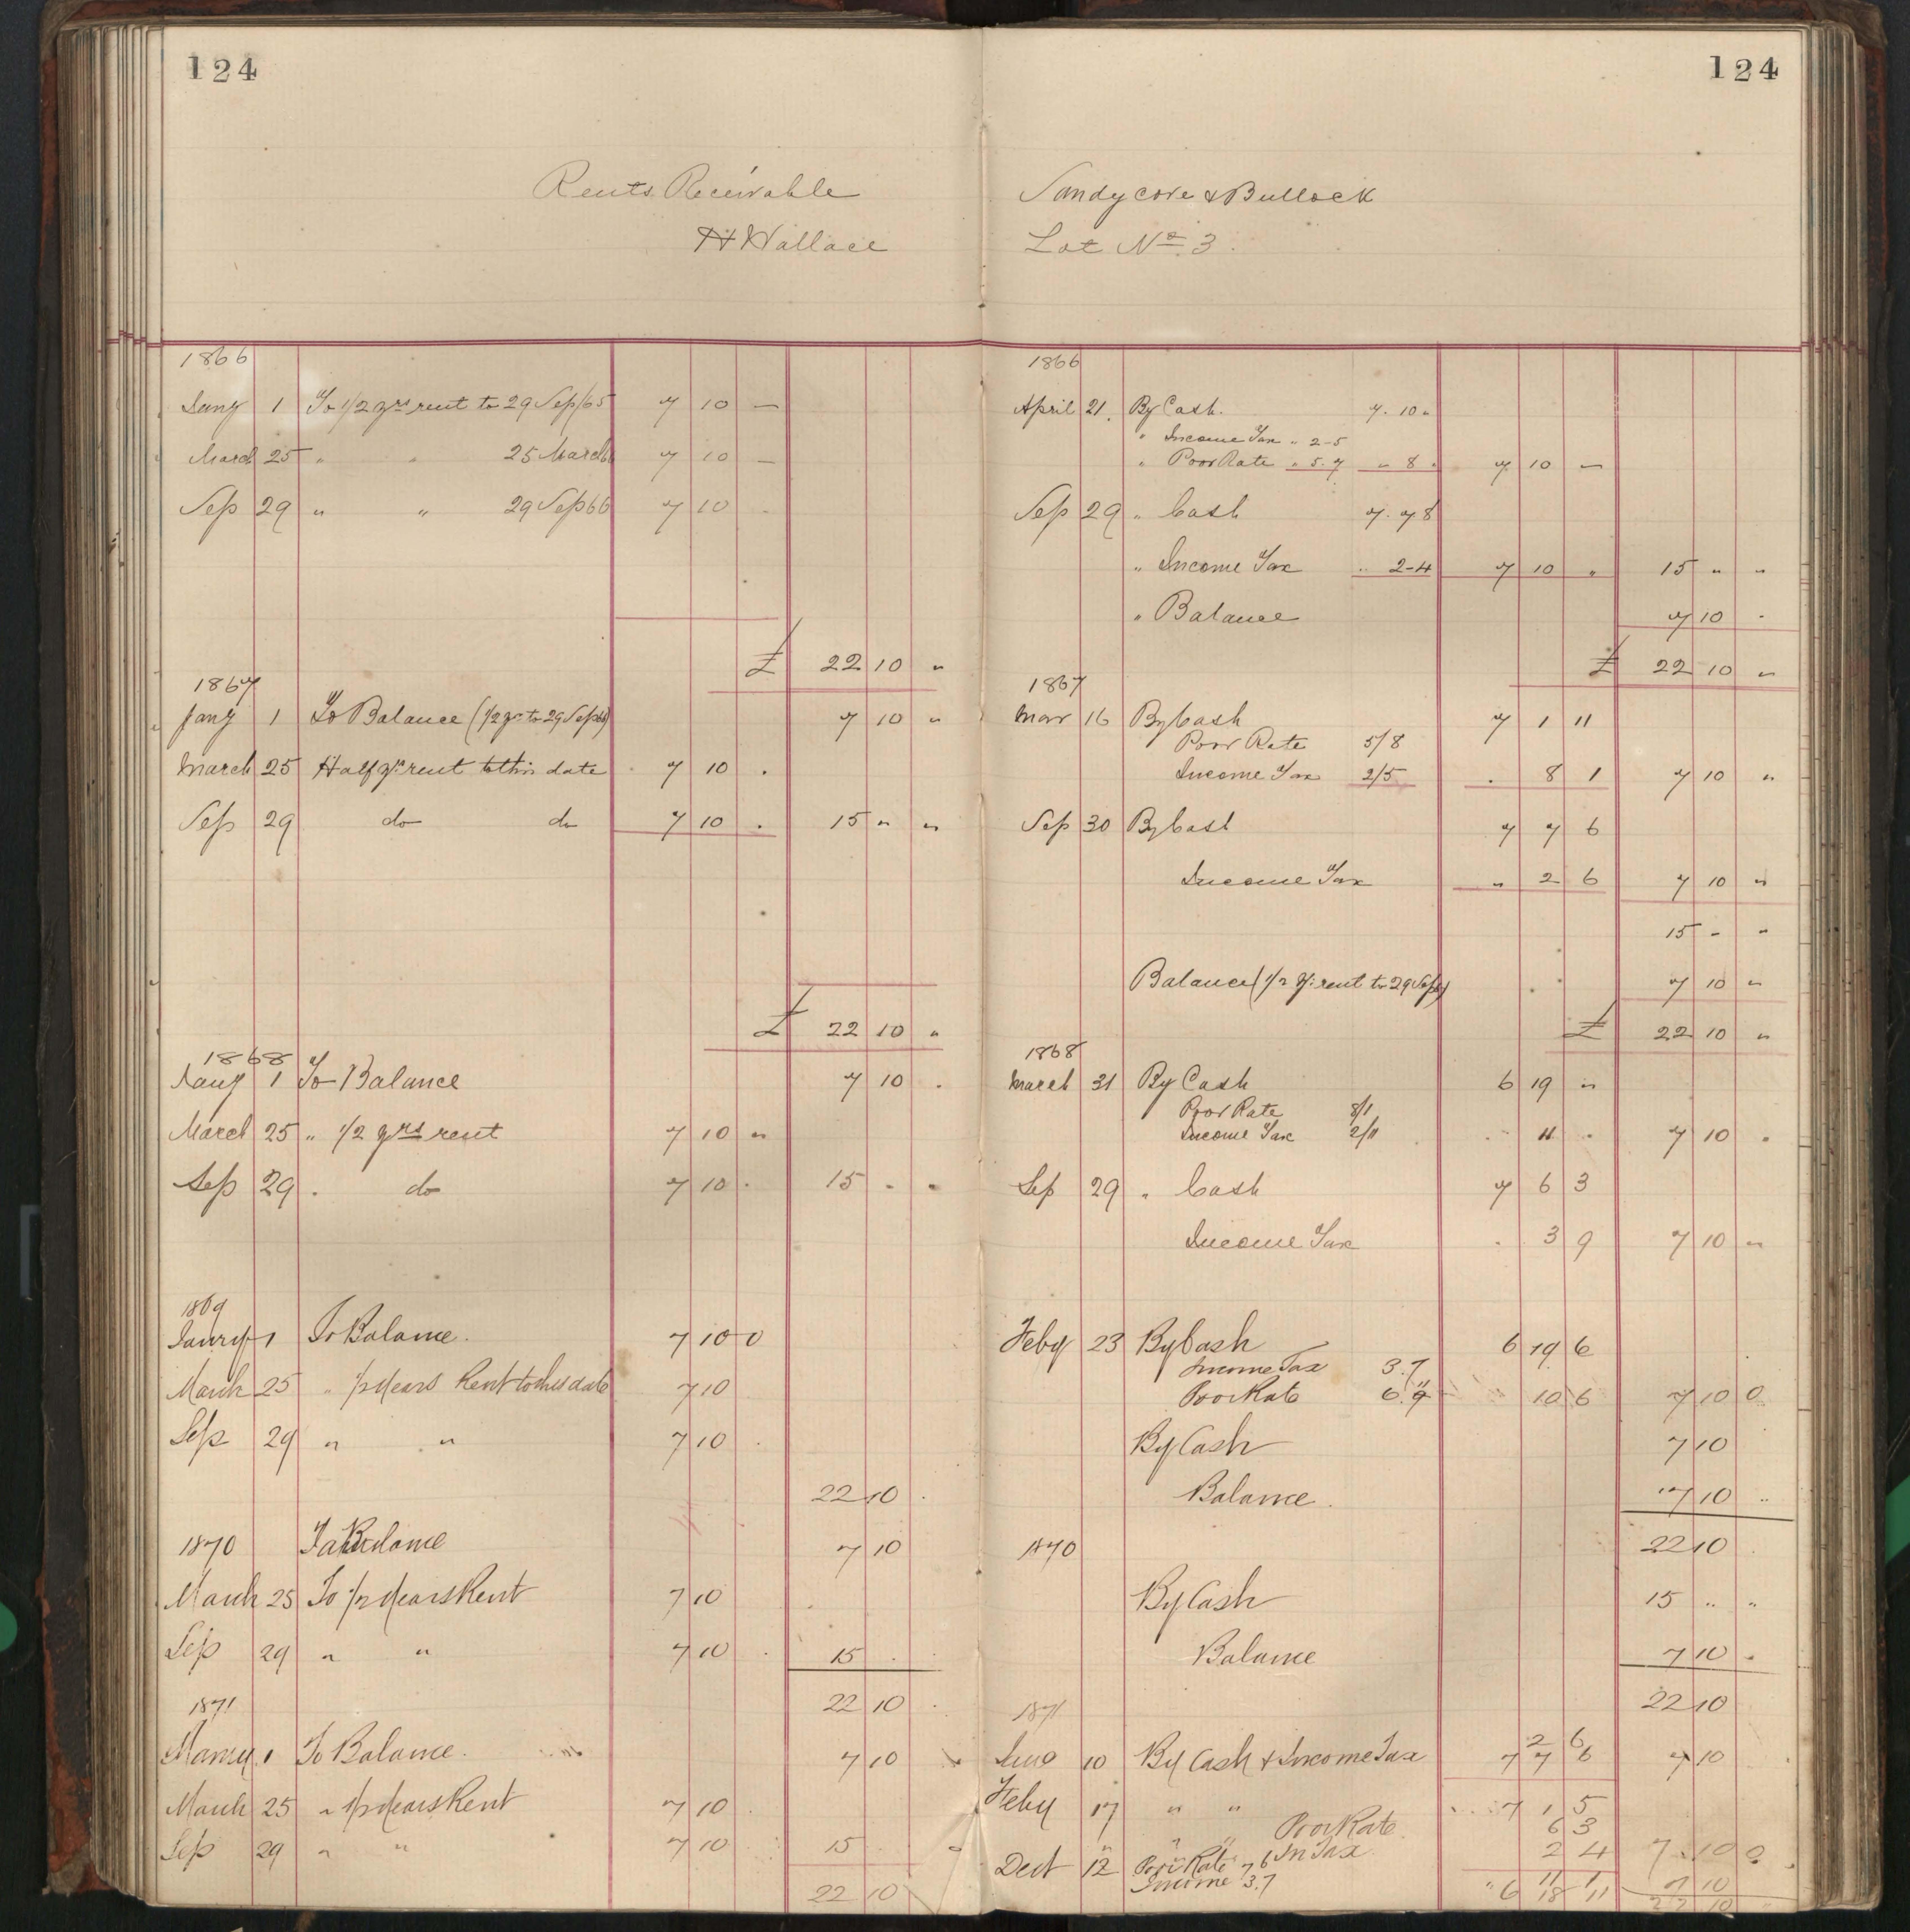 124
Rents Receivable
H Wallace
1866
Jany 1 To 1/2 yrs rent to 29 Sep/65 7 10 —
March 25 " " 25 March 66 7 10 —
Sep 29 " " 29 Sep 66 7 10 .
£ 22 10 "
1867
Jany 1 To Balance (1/2 yr to 29 Sep 66) 7 10 "
March 25 Half yr rent to this date 7 10 .
Sep 29 do do 7 10 . 15 " "
£ 22 10 "
1868
Jany 1 To Balance 7 10 .
March 25 " 1/2 yrs rent 7 10 "
Sep 29 . do 7 10 . 15 . .
1869
Janry 1 To Balance. 7 10 0
March 25 " 1/2 Years Rent to this date 7 10
Sep 29 " " 7 10 .
22 10 .
1870 To Balance 7 10
March 25 To 1/2 Years Rent 7 10
Sep 29 " " 7 10 . 15 .
1871 22 10 .
1 To Balance. 7 10
March 25 " 1/2 Years Rent 7 10 .
Sep 29 " " 7 10 15
22 10
124
Sandycove & Bullock
Lot No 3.
1866
April 21. By Cash. 7. 10 "
" Income Tax " 2-5
" Poor Rate " 5.7 " 8 . 7 10 —
Sep 29 " Cash 7. 7 8
" Income Tax .. 2-4 7 10 " 15 " "
" Balance 7 10 .
£ 22 10 "
1867
Mar 16 By Cash 7 1 11
Poor Rate 5/8
Income Tax 2/5 . 8 1 7 10 "
Sep 30 By Cash 7 7 6
Income Tax " 2 6 7 10 "
15 - "
Balance (1/2 yr rent to 29 Sep) 7 10 "
£ 22 10 "
1868
March 31 By Cash 6 19 "
Poor Rate 8/1
Income Tax 2/11 . 11 . 7 10 .
Sep 29 " Cash 7 6 3
Income Tax . 3 9 7 10 "
Feby 23 By Cash 6 19 6
Income Tax 3.7
Poor Rate 6.9 " 10 6 7 10 0
By Cash 7 10
Balance. 7 10 ..
1870 22 10 .
By Cash 15 " "
Balance 7 10 .
1871 22 10
2 6
10 By Cash & Income Tax 7 7 6 7 10
Feby 17 " " 7 1 5
Poor Rate. 6 3
" " In Tax 2 4 7 10 0
Dect 12 Poor Rate 7 6 11 1 7 10
Income 3.7 " 6 18 11 22 10